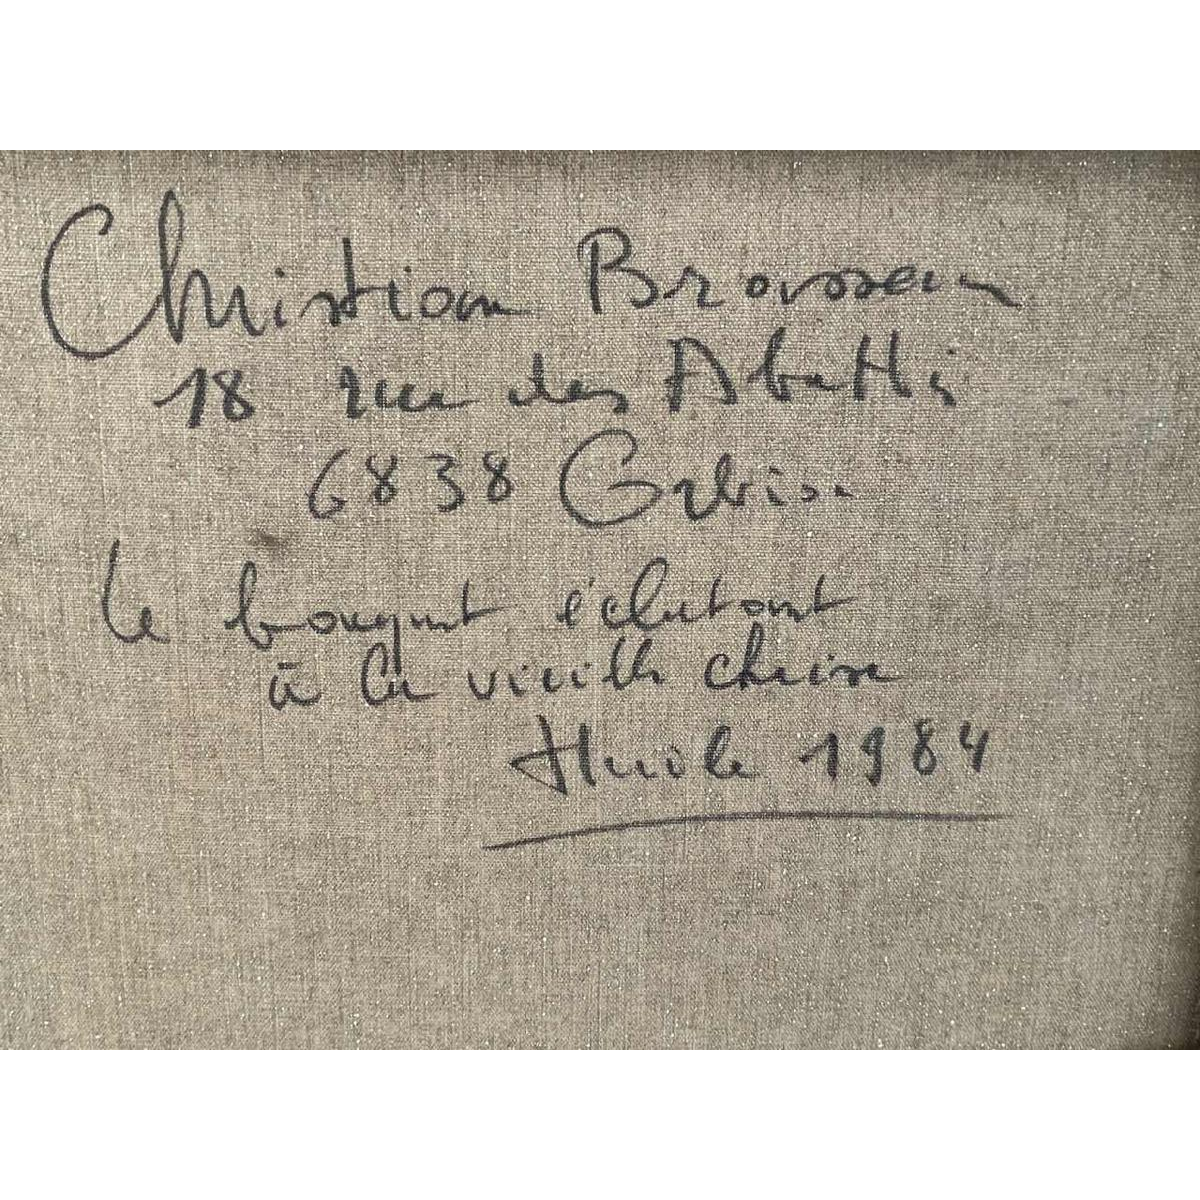 Christian Brousseau
18 rue des Abattis
6838 Corbion
le bouquet éclatant
à la vieille chaise
Huile 1984